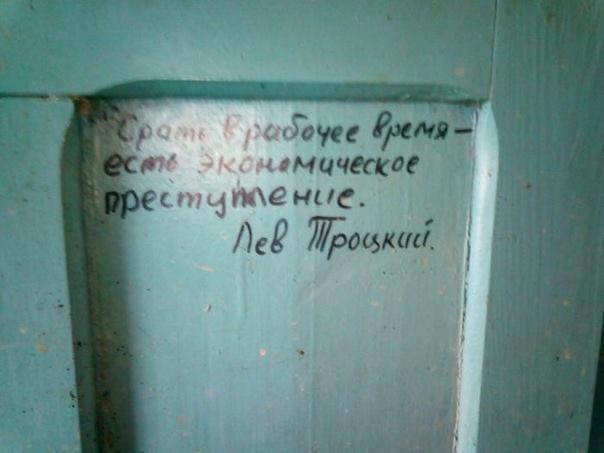 Срать в рабочее время –
есть экономическое
преступление.
Лев Троцкий.